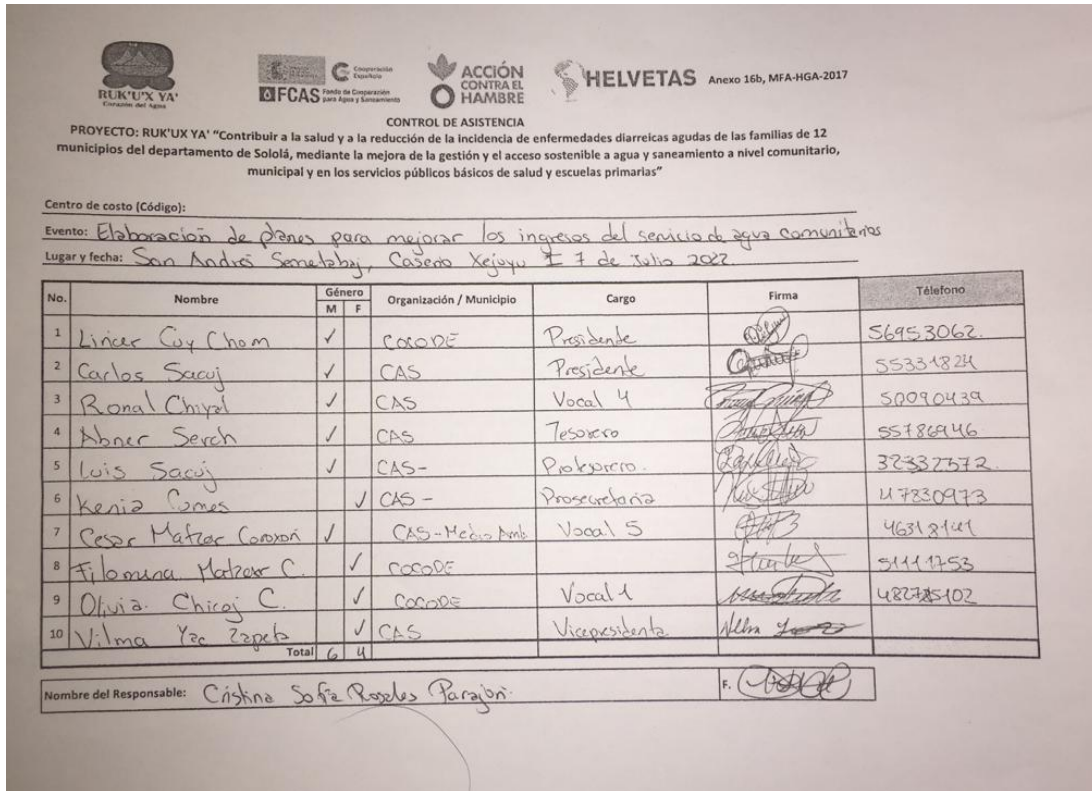 RUK'U'X YA'
Corazón del Agua
Cooperación Española
FCAS Fondo de Cooperación para Agua y Saneamiento
ACCIÓN CONTRA EL HAMBRE
HELVETAS
Anexo 16b, MFA-HGA-2017
CONTROL DE ASISTENCIA
PROYECTO: RUK'UX YA' “Contribuir a la salud y a la reducción de la incidencia de enfermedades diarreicas agudas de las familias de 12
municipios del departamento de Sololá, mediante la mejora de la gestión y el acceso sostenible a agua y saneamiento a nivel comunitario,
municipal y en los servicios públicos básicos de salud y escuelas primarias”
Centro de costo (Código):
Evento: Elaboración de planes para mejorar los ingresos del servicio de agua comunitarios
Lugar y fecha: San Andrés Semetabaj, Caserío Xejuyu I 7 de Julio 2022
No. Nombre Género M F Organización / Municipio Cargo Firma Télefono
1 Lincer Cuy Chom ✓ COCODE Presidente 56953062.
2 Carlos Sacuj ✓ CAS Presidente 55331824
3 Ronal Chiyal ✓ CAS Vocal 4 50090439
4 Abner Serch ✓ CAS Tesorero 55786946
5 Luis Sacuj ✓ CAS- 32332572.
6 Kenia ✓ CAS - Prosecretaria 47830973
7 Cesar Matzar ✓ CAS-Medio Amb. Vocal 5
8 Filomina Matzar C. ✓ COCODE 51111753
9 Olivia. Chicoj C. ✓ COCODE Vocal 1
10 Vilma Yac Zapeta ✓ CAS Vicepresidenta
Total 6 4
Nombre del Responsable: Cristina Sofía Rosales Parajón. F.